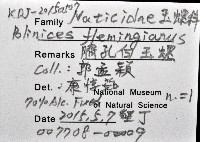 KDJ-20150507
Family Naticidae 玉螺科
Polinices flemingianus
Remarks 臍孔白玉螺
Coll.: 郭孟穎
Det.: 康
70% Alc. Fixed National Museum of Natural Science n.=1
Date 2015.5.7 墾丁
007708-00009